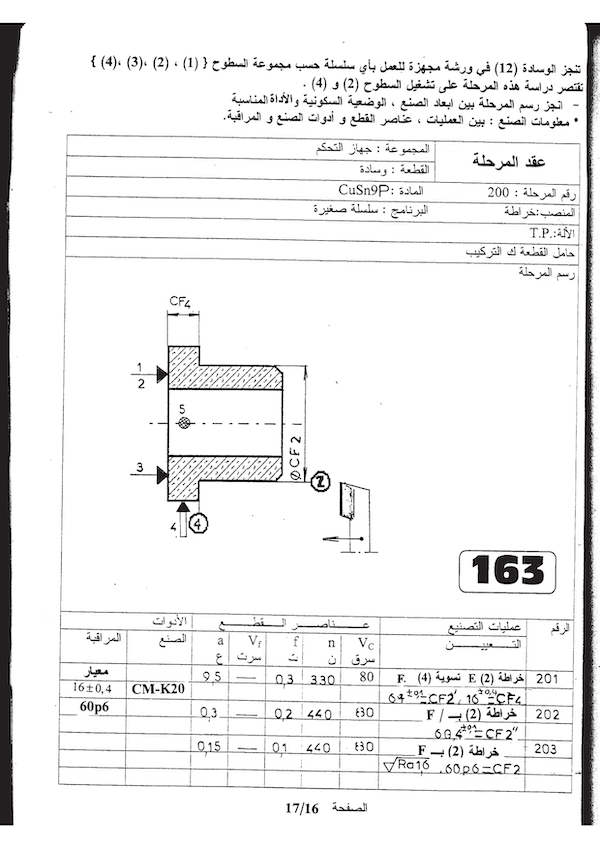 تنجز الوسادة (12) في ورشة مجهزة للعمل بأي سلسلة حسب مجموعة السطوح { (1) ، (2) ، (3) ، (4) }
تقتصر دراسة هذه المرحلة على تشغيل السطوح (2) و (4) .
- انجز رسم المرحلة بين ابعاد الصنع ، الوضعية السكونية والأداة المناسبة
* معلومات الصنع : بين العمليات ، عناصر القطع و أدوات الصنع و المراقبة.
عقد المرحلة
المجموعة : جهاز التحكم
القطعة : وسادة
رقم المرحلة : 200
المادة : CuSn9P
المنصب:خراطة
البرنامج : سلسلة صغيرة
الآلة: T.P.
حامل القطعة ك التركيب
رسم المرحلة
CF4
1
2
5
3
4
ØCF2
2
4
163
الرقم
عمليات التصنيع
عناصر القطع
الأدوات
التعيين
Vc
n
f
Vf
a
الصنع
المراقبة
سرق
ن
ت
سرت
ع
201
خراطة (2) E تسوية (4) F.
80
330
0,3
—
9,5
CM-K20
معيار
16±0,4
202
خراطة (2) بـ F /
440
0,2
—
0,3
60p6
203
خراطة (2) بـ F
440
0,1
—
0,15
√Ra1,6 .60p6=CF2
الصفحة 17/16